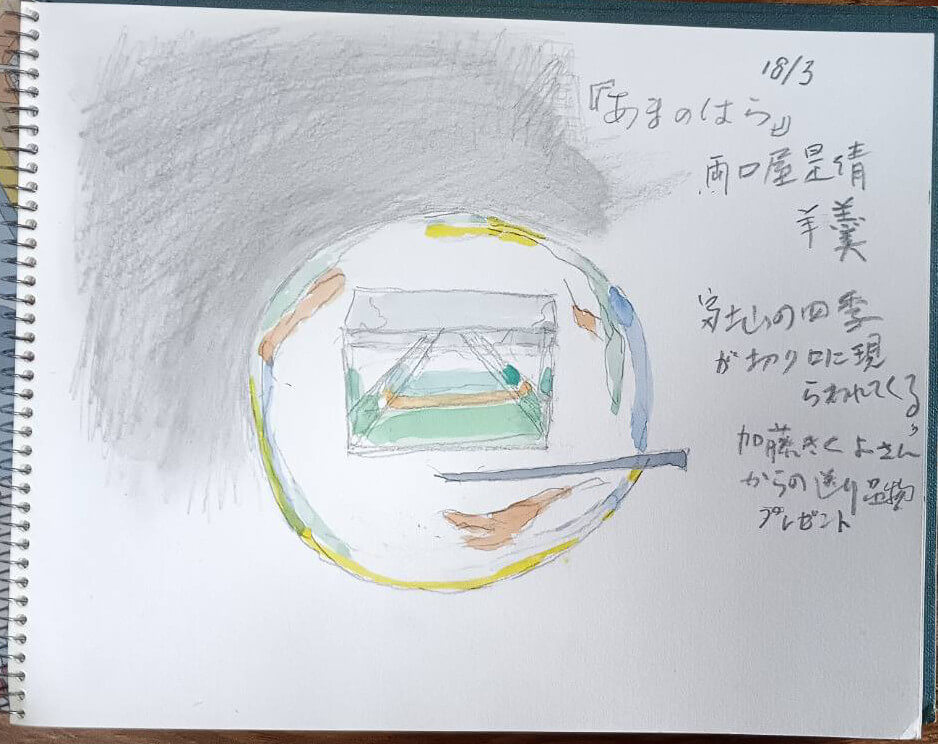 18/3
『あまのはら』
両口屋是清
羊羹
富士山の四季
が切り口に現
らわれてくる
加藤きくよさん
からの送り品物
プレゼント